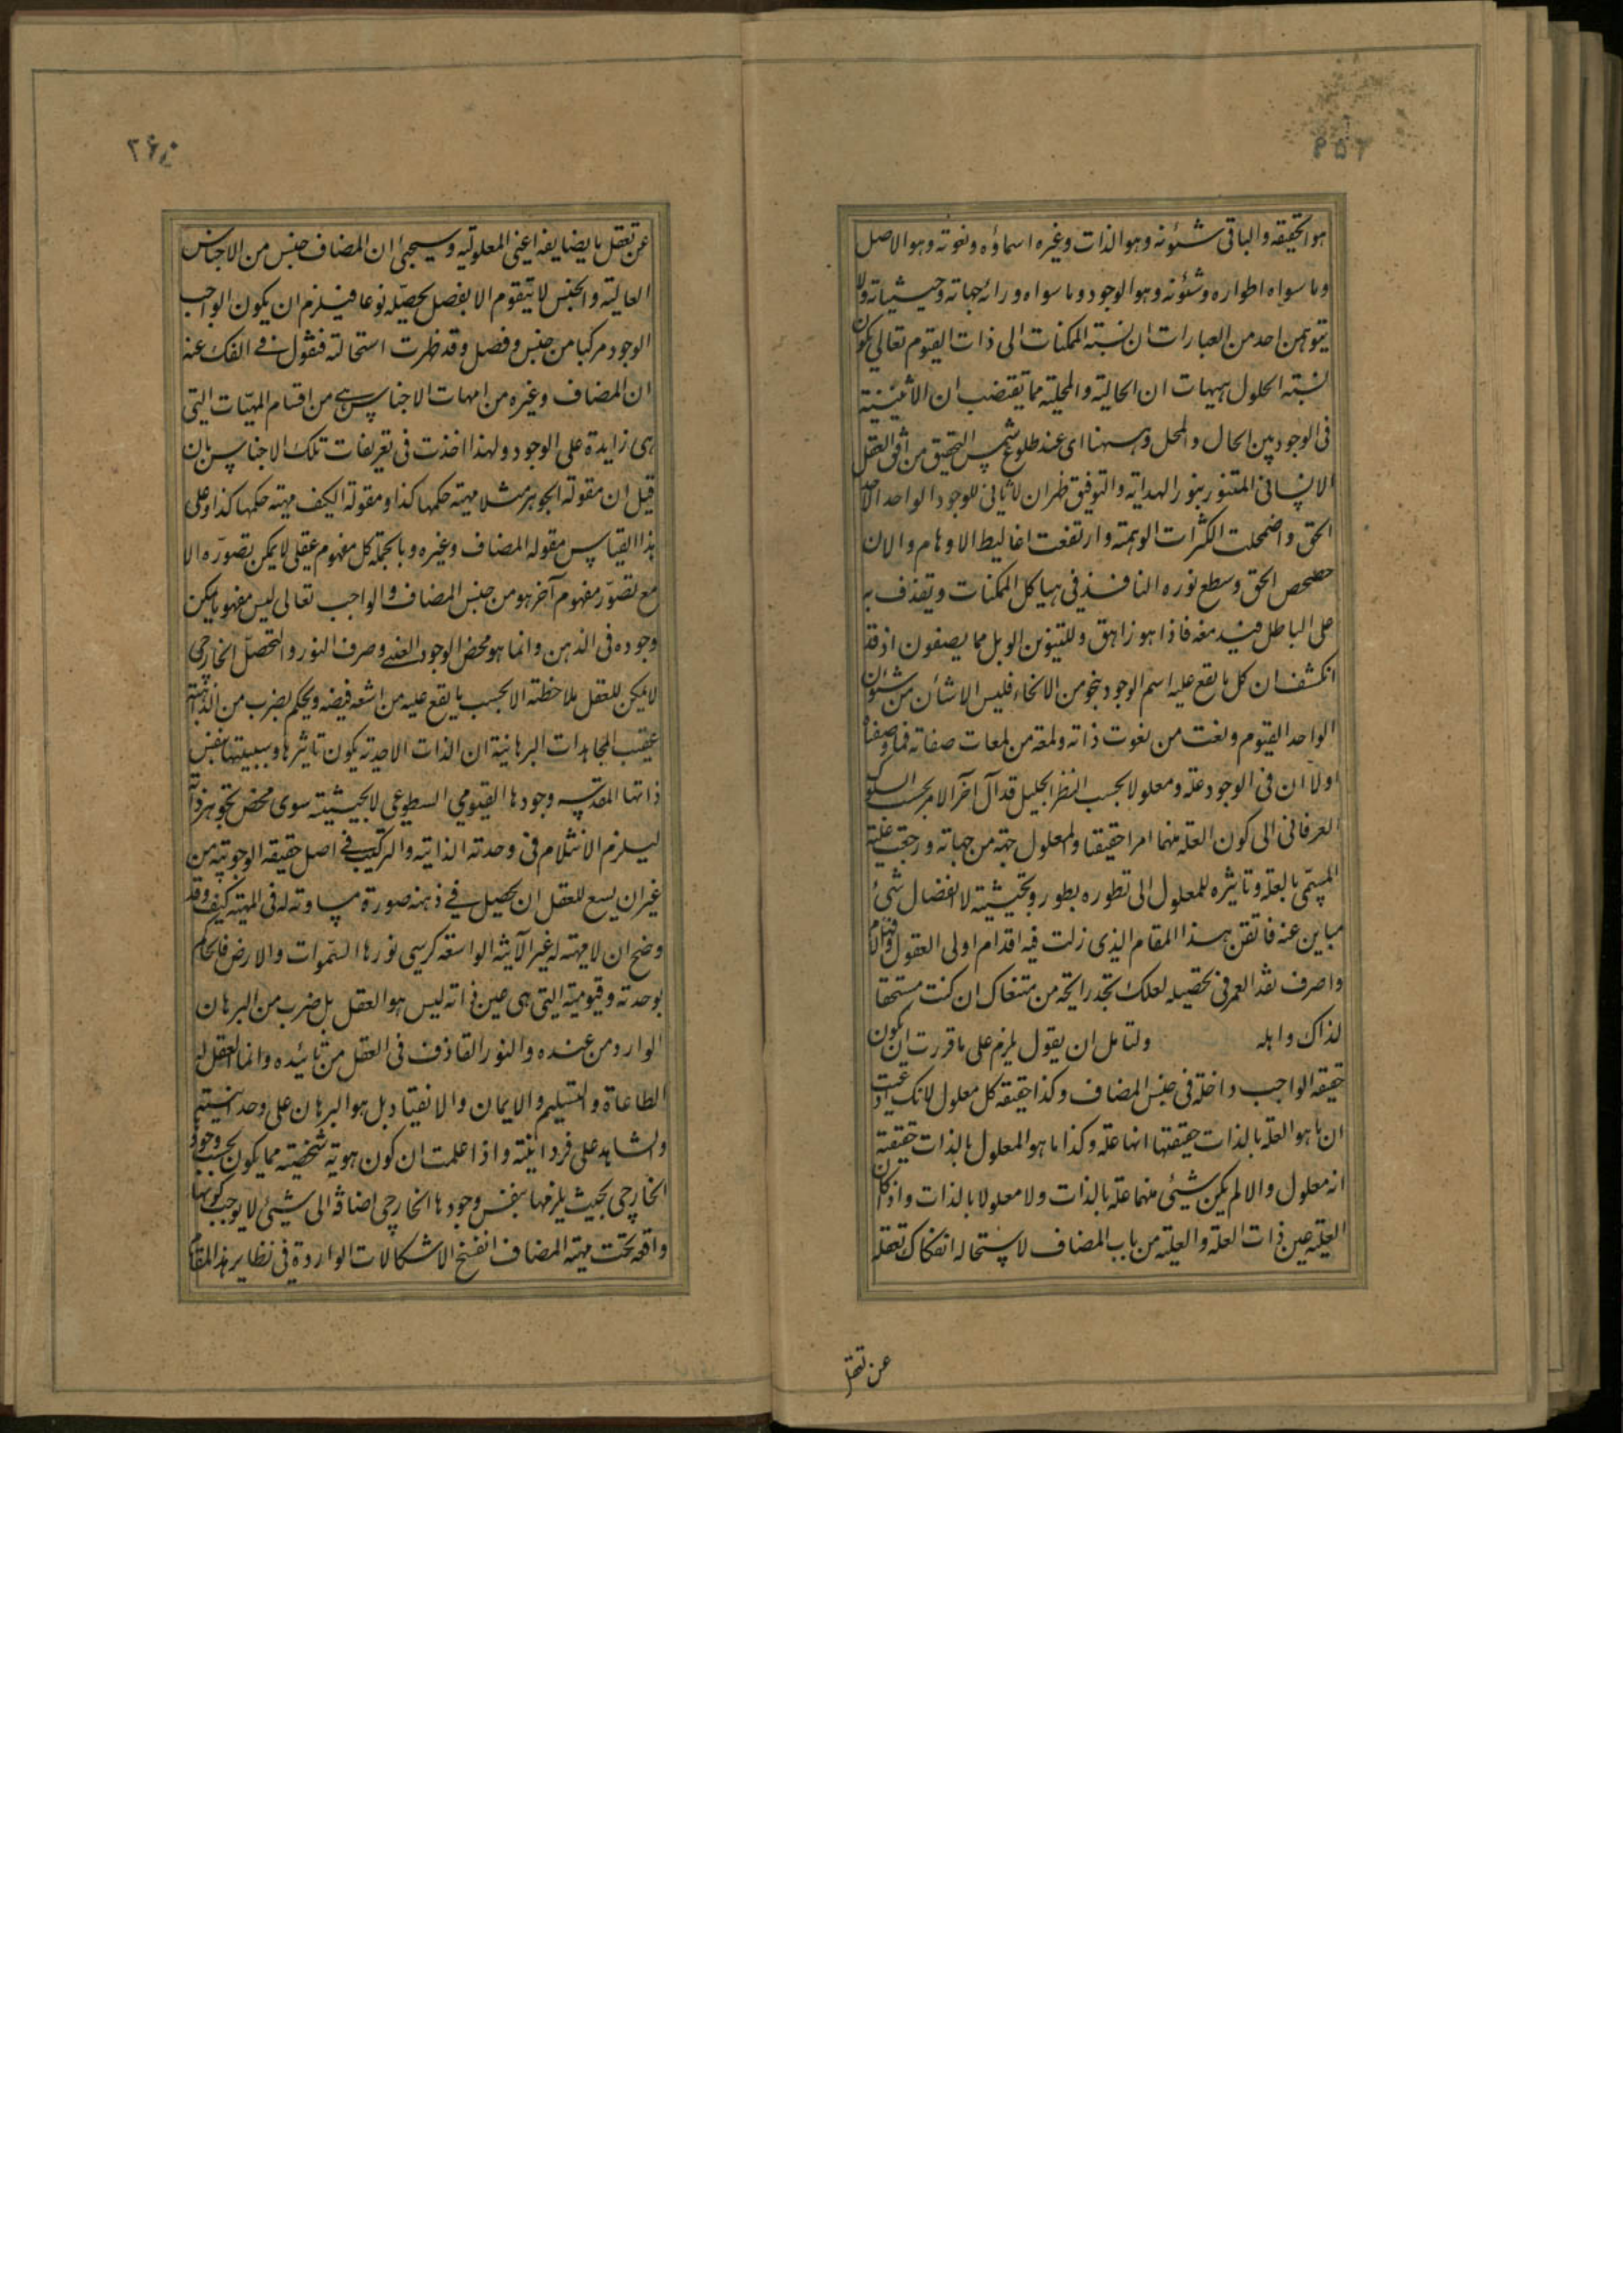 هو الحقیقه والباقی شئونه وهو الذات وغیره اسماؤه ونعوته وهو الاصل
وما سواه اطواره وشئونه وهو الوجود وما سواه ورائه جهاته وحیثیاته ولا
یتوهمن احد من العبارات ان نسبته الممکنات الی ذات القیوم تعالی یکون
نسبته الحلول هیهات ان الحالیته والمحلیته مما یقتضیان الاثنینیته
فی الوجود بین الحال والمحل وههنا ای عند طلوع شمس التحقیق من افق العقل
الانسانی المتنور بنور الهدایته والتوفیق ظهر ان لا ثانی للوجود الواحد الاحد
الحق واضمحلت الکثرات الوهمیته وارتفعت اغالیط الاوهام والان
حصحص الحق وسطع نوره النافذ فی هیاکل الممکنات ویقذف به
علی الباطل فیدمغه فاذا هو زاهق وللثنویین الویل مما یصفون اذ قد
انکشف ان کل ما یقع علیه اسم الوجود بنحو من الانحاء فلیس الا شأن من شئون
الواحد القیوم ونعت من نعوت ذاته ولمعته من لمعات صفاته فما وصفناه
اولا ان فی الوجود علة ومعلولا بحسب النظر الجلیل قد آل آخر الامر بحسب السلوک
العرفانی الی کون العلة منهما امرا حقیقتا والمعلول جهته من جهاته ورجعت علیته
المسمی بالعلة وتاثیره للمعلول الی تطوره بطور وتحیثیته لا انفصال شیء
مباین عنه فاتقن هذا المقام الذی زلت فیه اقدام اولی العقول والافهام
واصرف نقد العمر فی تحصیله لعلک تجد رایحته من متبغاک ان کنت مستحقا
لذاک واهله ولتامل ان یقول یلزم علی ما قررت ان یکون
حقیقه الواجب داخلة فی جنس المضاف وکذا حقیقه کل معلول لانک ادعیت
ان ما هو العلة بالذات حقیقتها انها علة وکذا ما هو المعلول بالذات حقیقته
انه معلول والا لم یکن شیئی منهما علة بالذات ولا معلولا بالذات واذ کان
العلیته عین ذات العلة والعلیته من باب المضاف لاستحاله انفکاک تعقله
عن تعقل
عن تعقل ما یضایفه اعنی المعلولیته وسیجیٔ ان المضاف جنس من الاجناس
العالیته والجنس لا یتقوم الا بفصل یحصّله نوعا فیلزم ان یکون الواجب
الوجود مرکبا من جنس وفصل وقد ظهرت استحالته فنقول فی الفک عنه
ان المضاف وغیره من امهات الاجناس هی من اقسام المهیّات التی
هی زایدة علی الوجود ولهذا اخذت فی تعریفات تلک الاجناس بان
قیل ان مقولة الجوهر مثلا مهیته حکمها کذا ومقولة الکیف مهیته حکمها کذا وعلی
هذا القیاس مقوله المضاف وغیره وبالجملة کل مفهوم عقلی لا یمکن تصوّره الا
مع تصوّر مفهوم آخر هو من جنس المضاف والواجب تعالی لیس مفهوما یمکن
وجوده فی الذهن وانما هو محض الوجود العینی وصرف النور والتحصّل الخارجی
لا یمکن للعقل ملاحظته الا بحسب ما یقع علیه من اشعة فیضه ویحکم بضرب من الدهشته
عقیب المجاهدات البرهانیة ان الذات الاحدیته یکون تاثیرها وسببیتها بنفس
ذاتها المقدسه وجودها القیومی السطوعی لا بحیثیته سوی محض تجوهر ذاته
لیلزم الانثلام فی وحدته الذاتیه والترکیب فی اصل حقیقه الوجوبیته من
غیر ان یسع للعقل ان یحصیل فی ذهنه صورة مساوته له فی المهیته کیف وقد
وضح ان لا مهیته له غیر الآنیته الواسعة کرسی نورها السموات والارض فالحاکم
بوحدته وقیومیته التی هی عین ذاته لیس هو العقل بل ضرب من البرهان
الوارد من عنده والنور القاذف فی العقل من تائیده وانما العقل له
الطاعاة والتسلیم والایمان والانقیاد بل هو البرهان علی وحدانیته
والشاهد علی فردانیته واذا علمت ان کون هویته شخصیته مما یکون بحسب وجودها
الخارجی بحیث یلزمها بنفس وجودها الخارجی اضافة الی شیئی لا یوجب کونها
واقعه تحت مهیته المضاف انفسخ الاشکالات الواردة فی نظایر هذا المقام